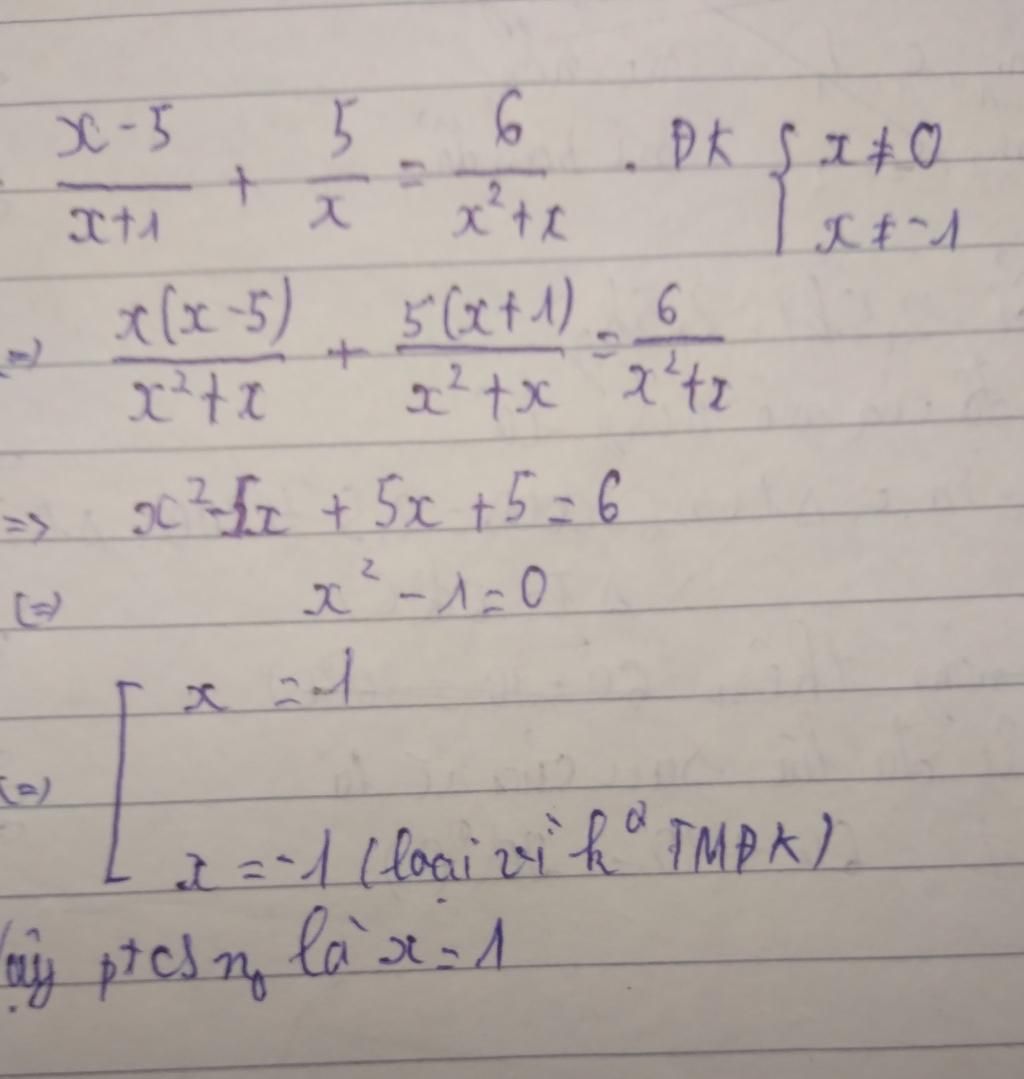 x-5/x+1 + 5/x = 6/x²+x . ĐK { x ≠ 0
x ≠ -1
=) x(x-5)/x²+x + 5(x+1)/x²+x = 6/x²+x
=> x²-5x + 5x + 5 = 6
(=) x² - 1 = 0
[ x = 1
(=)
x = -1 (loại vì k° TMĐK)
ptcs n₀ là x = 1